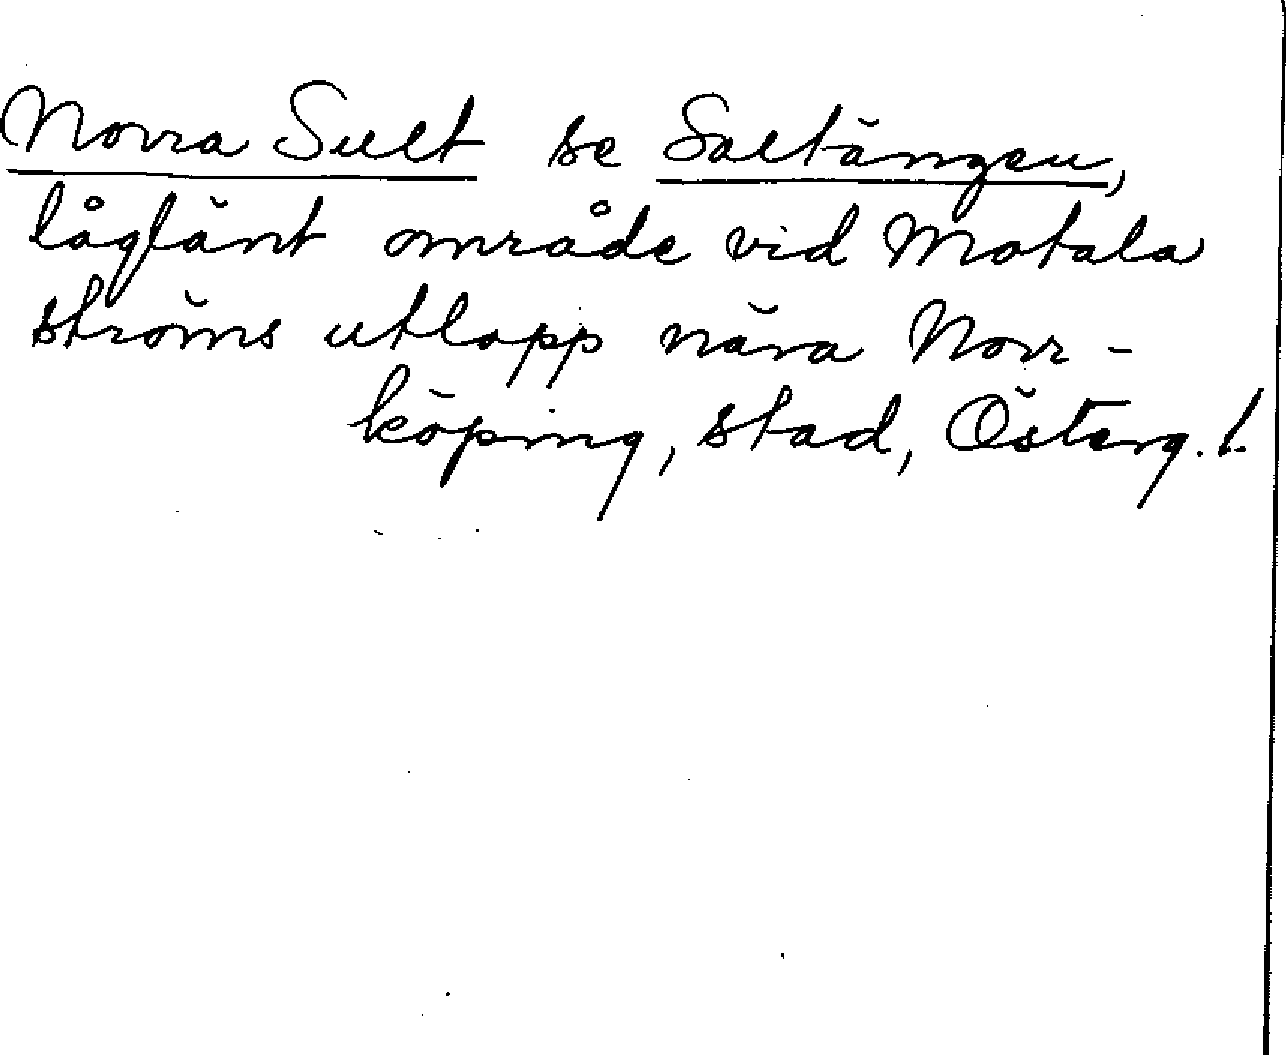 Norra Sult se Saltängen,
låglänt område vid Motala
ströms utlopp nära Norr-
köping, stad, Österg. l.